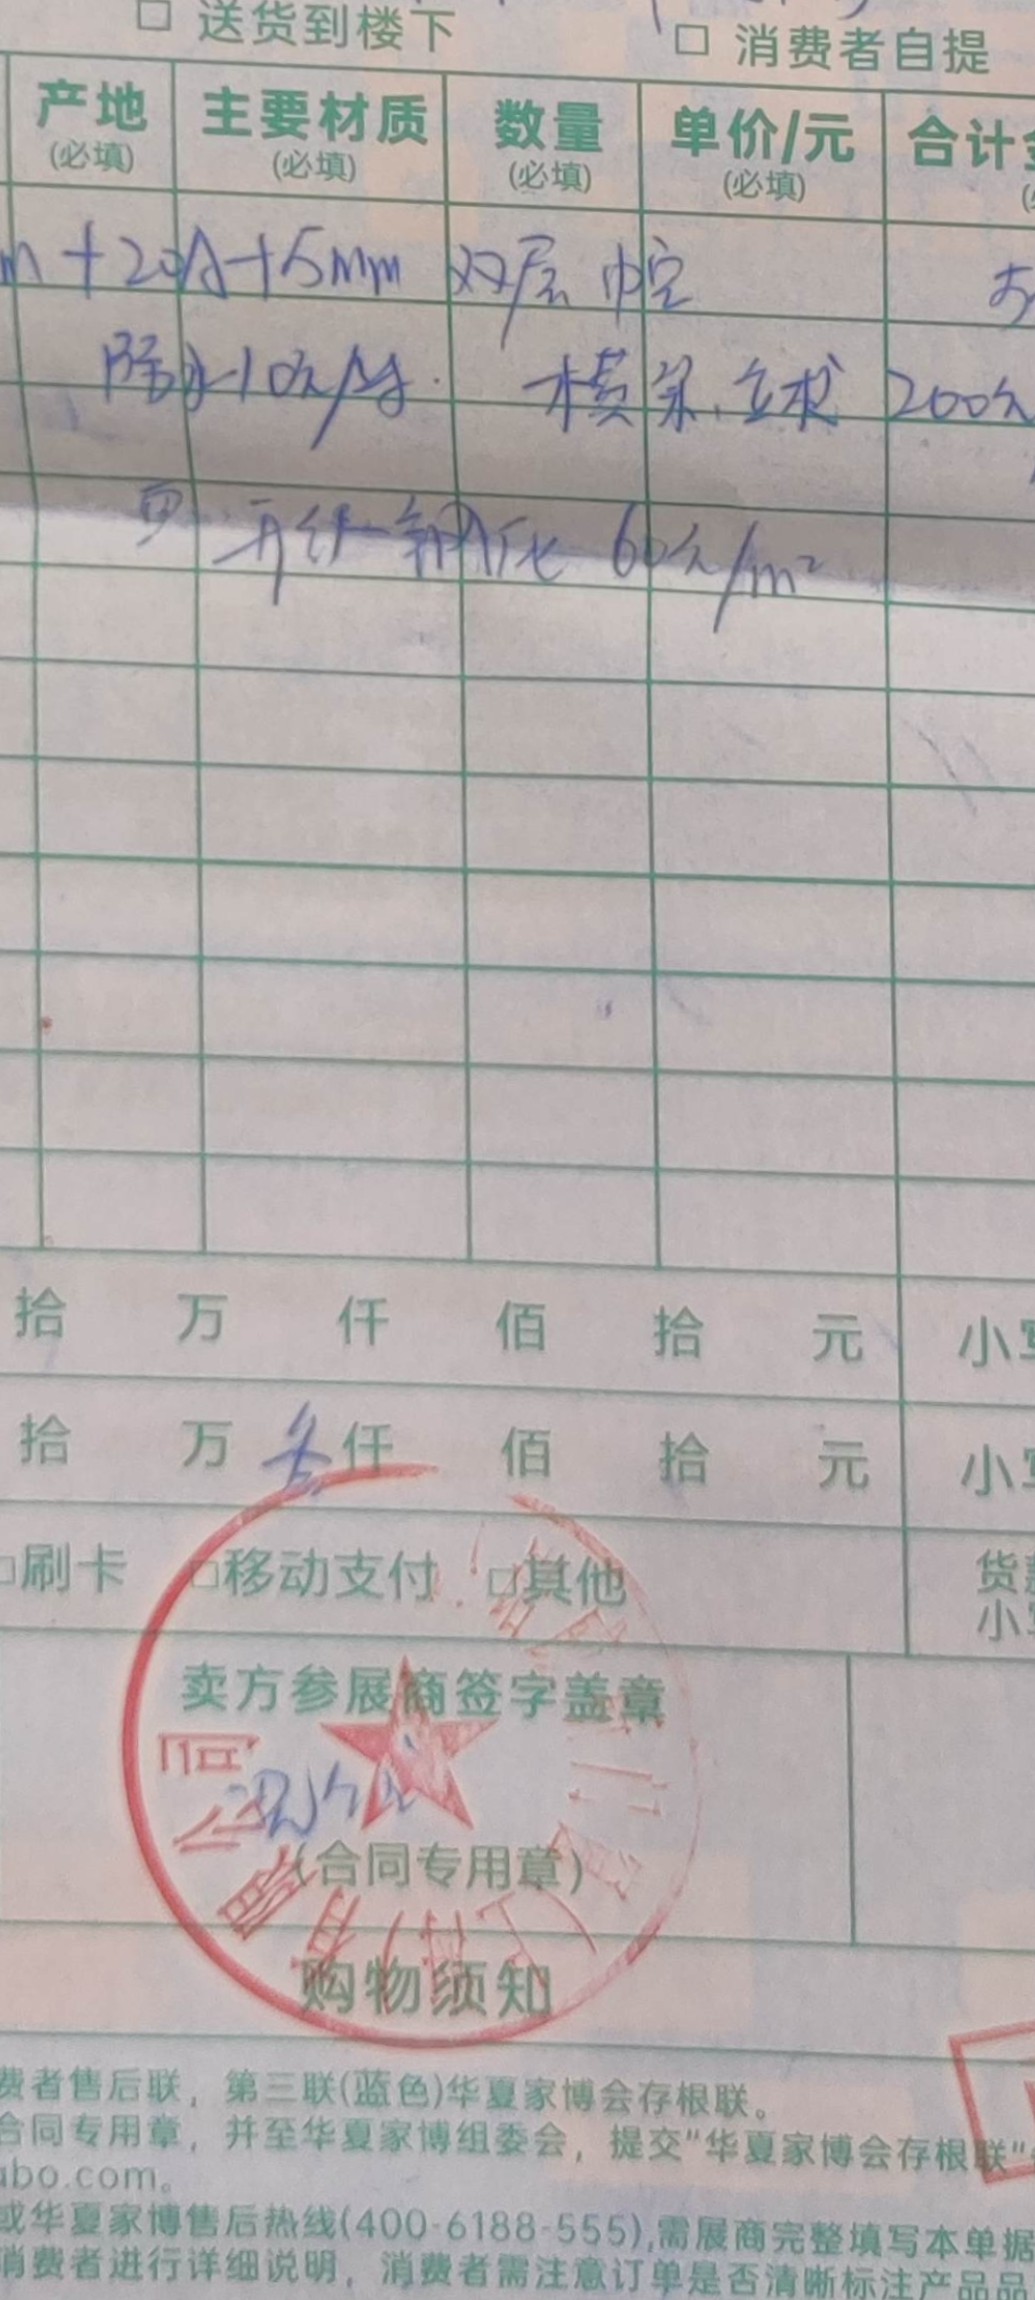 □ 送货到楼下 □ 消费者自提
产地 主要材质 数量 单价/元 合计
(必填) (必填) (必填) (必填)
m+20A+5mm 双层中空
10元/ 横梁、立柱 200元
钢化 60元/m²
拾 万 仟 佰 拾 元 小写
拾 万 仟 佰 拾 元 小写
□刷卡 □移动支付 □其他 货款
小写
卖方参展商签字盖章
(合同专用章)
有限公司
购物须知
费者售后联，第三联(蓝色)华夏家博会存根联。
合同专用章，并至华夏家博组委会，提交"华夏家博会存根联"
abo.com。
或华夏家博售后热线(400-6188-555),需展商完整填写本单据
消费者进行详细说明，消费者需注意订单是否清晰标注产品品